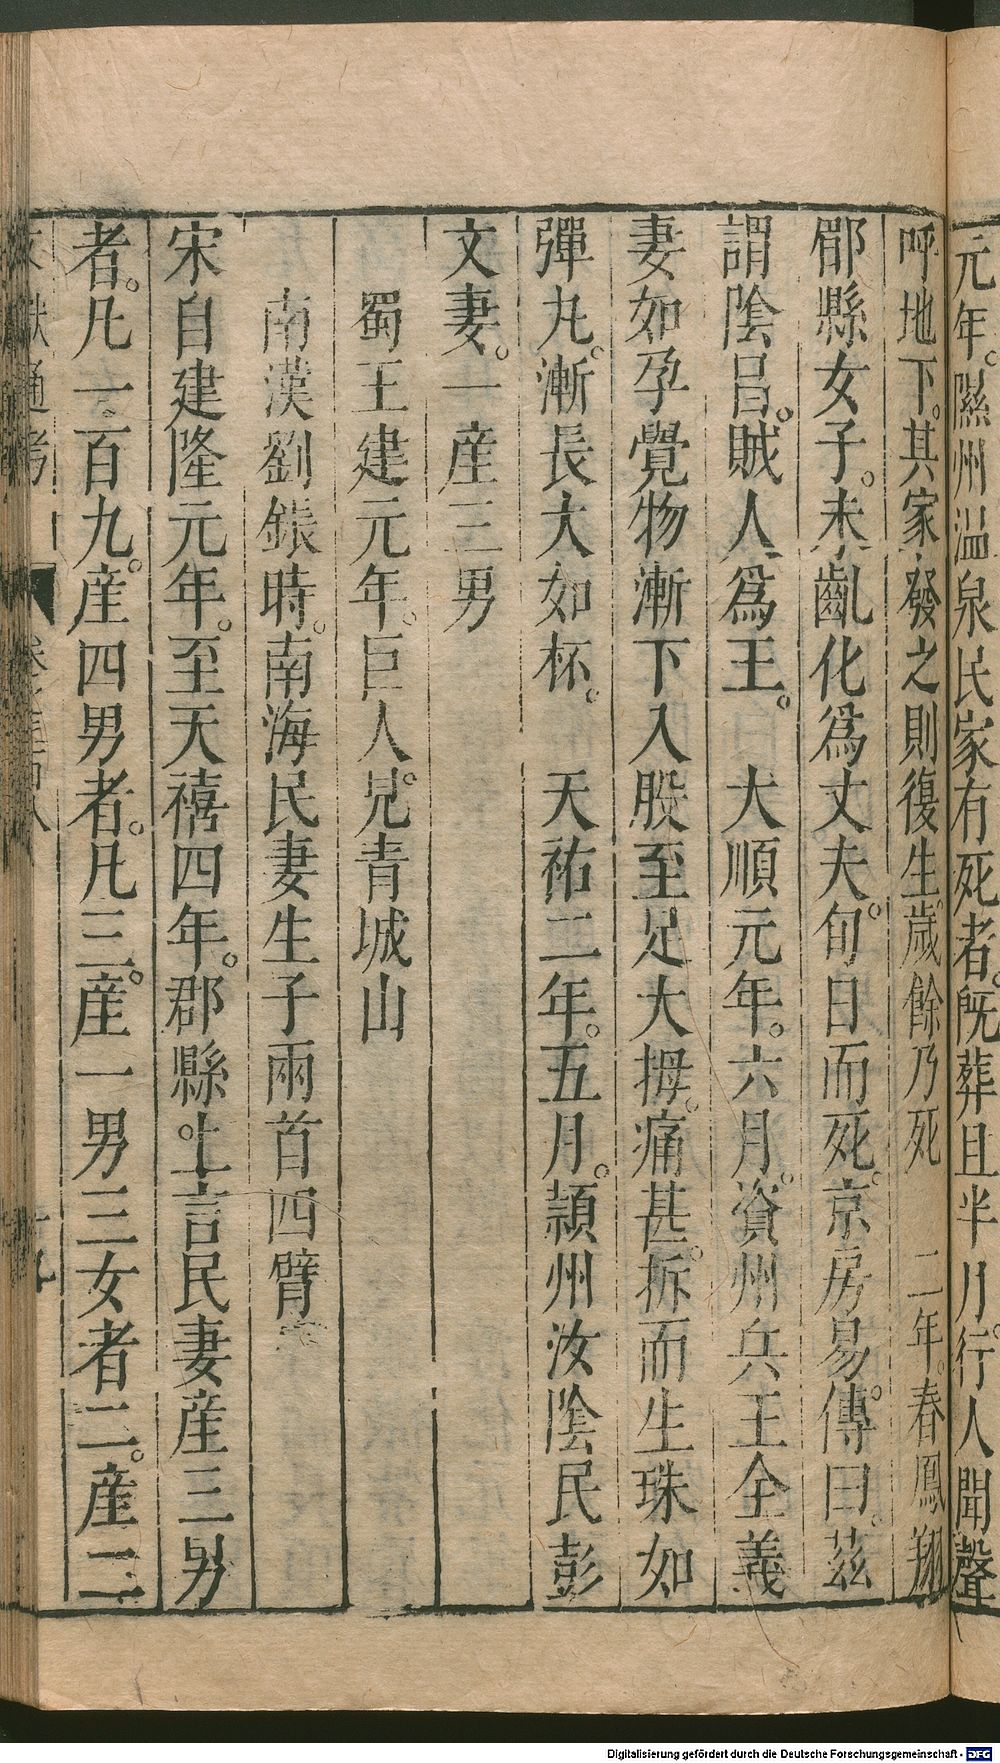 元年。隰州溫泉民家有死者。旣葬且半月。行人聞聲
呼地下。其家發之則復生。歲餘乃死　二年。春鳳翔
郿縣女子。未齔化爲丈夫。旬日而死。京房易傳。曰。茲
謂陰昌。賊人爲王。　大順元年。六月。資州兵王全義
妻如孕覺物漸下入股至足大拇。痛甚。拆而生珠如
彈丸。漸長大如杯。　天祐二年。五月。潁州汝陰民彭
文妻。一產三男
蜀王建元年。巨人見。青城山
南漢劉鋹時。南海民妻生子兩首四臂
宋自建隆元年。至天禧四年。郡縣上言民妻產三男
者。凡一百九。產四男者。凡三。產一男三女者二。產二
文獻通考
Digitalisierung gefördert durch die Deutsche Forschungsgemeinschaft - DFG